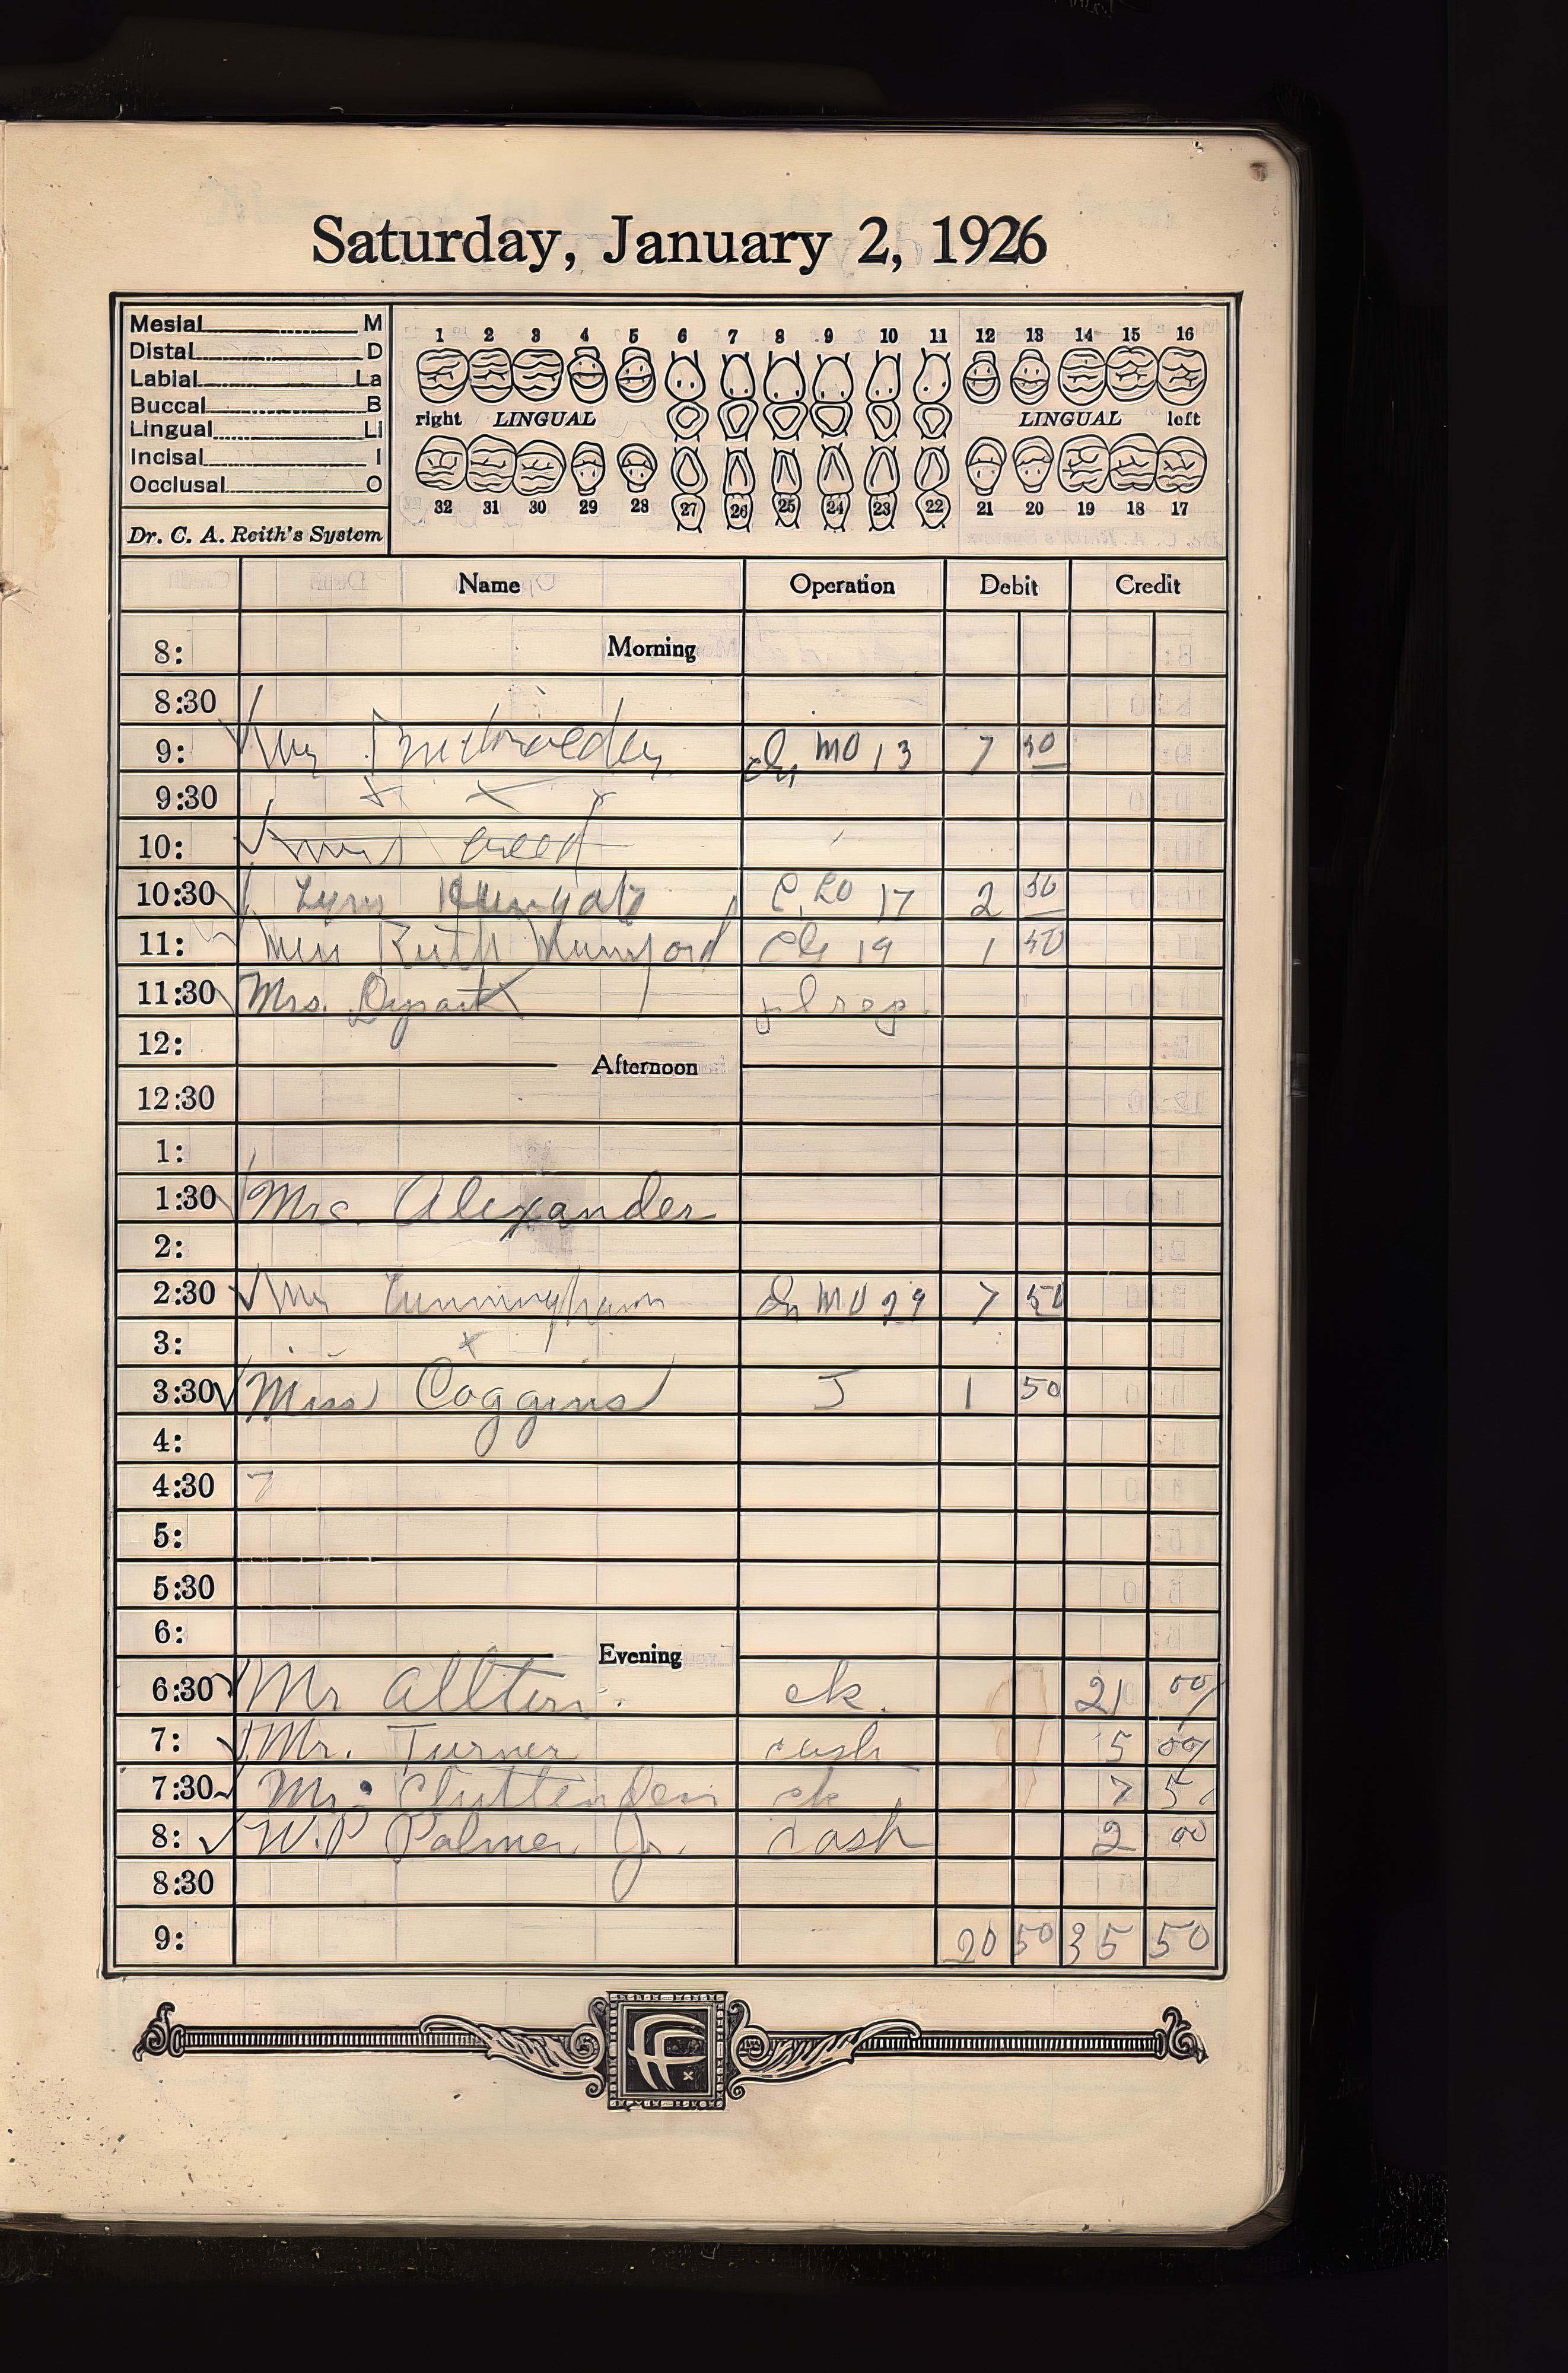 Saturday, January 2, 1926
Mesial M
Distal D
Labial La
Buccal B
Lingual Li
Incisal I
Occlusal O
Dr. C. A. Reith's System
1 2 3 4 5 6 7 8 9 10 11 12 13 14 15 16
right LINGUAL LINGUAL left
32 31 30 29 28 27 26 25 24 23 22 21 20 19 18 17
Name Operation Debit Credit
8: Morning
8:30
9: MO 13 7 50
9:30
10:
10:30 17 2 50
11: Miss Ruth Mumford 19 1 50
11:30 Mrs. Dysart
12:
Afternoon
12:30
1:
1:30 Mrs. Alexander
2:
2:30 Cunningham MO 29 7 50
3:
3:30 Miss Coggins J 1 50
4:
4:30
5:
5:30
6:
Evening
6:30 Mr ck. 21 00
7: Mr. Turner cash 5 00
7:30 Mr. Chittenden ck 7 50
8: W.P Palmer Jr. cash 2 00
8:30
9: 20 50 35 50